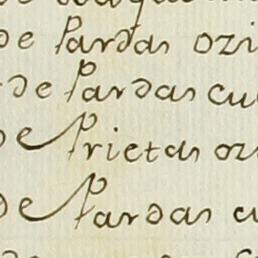 de Pardas ozi
de Pardas cu
de Prietas oz
de Pardas cu